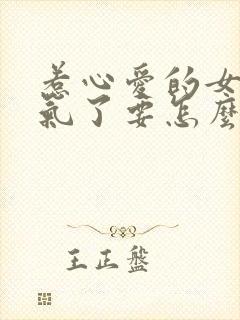 惹心愛的女
氣了要怎麼
王正盤